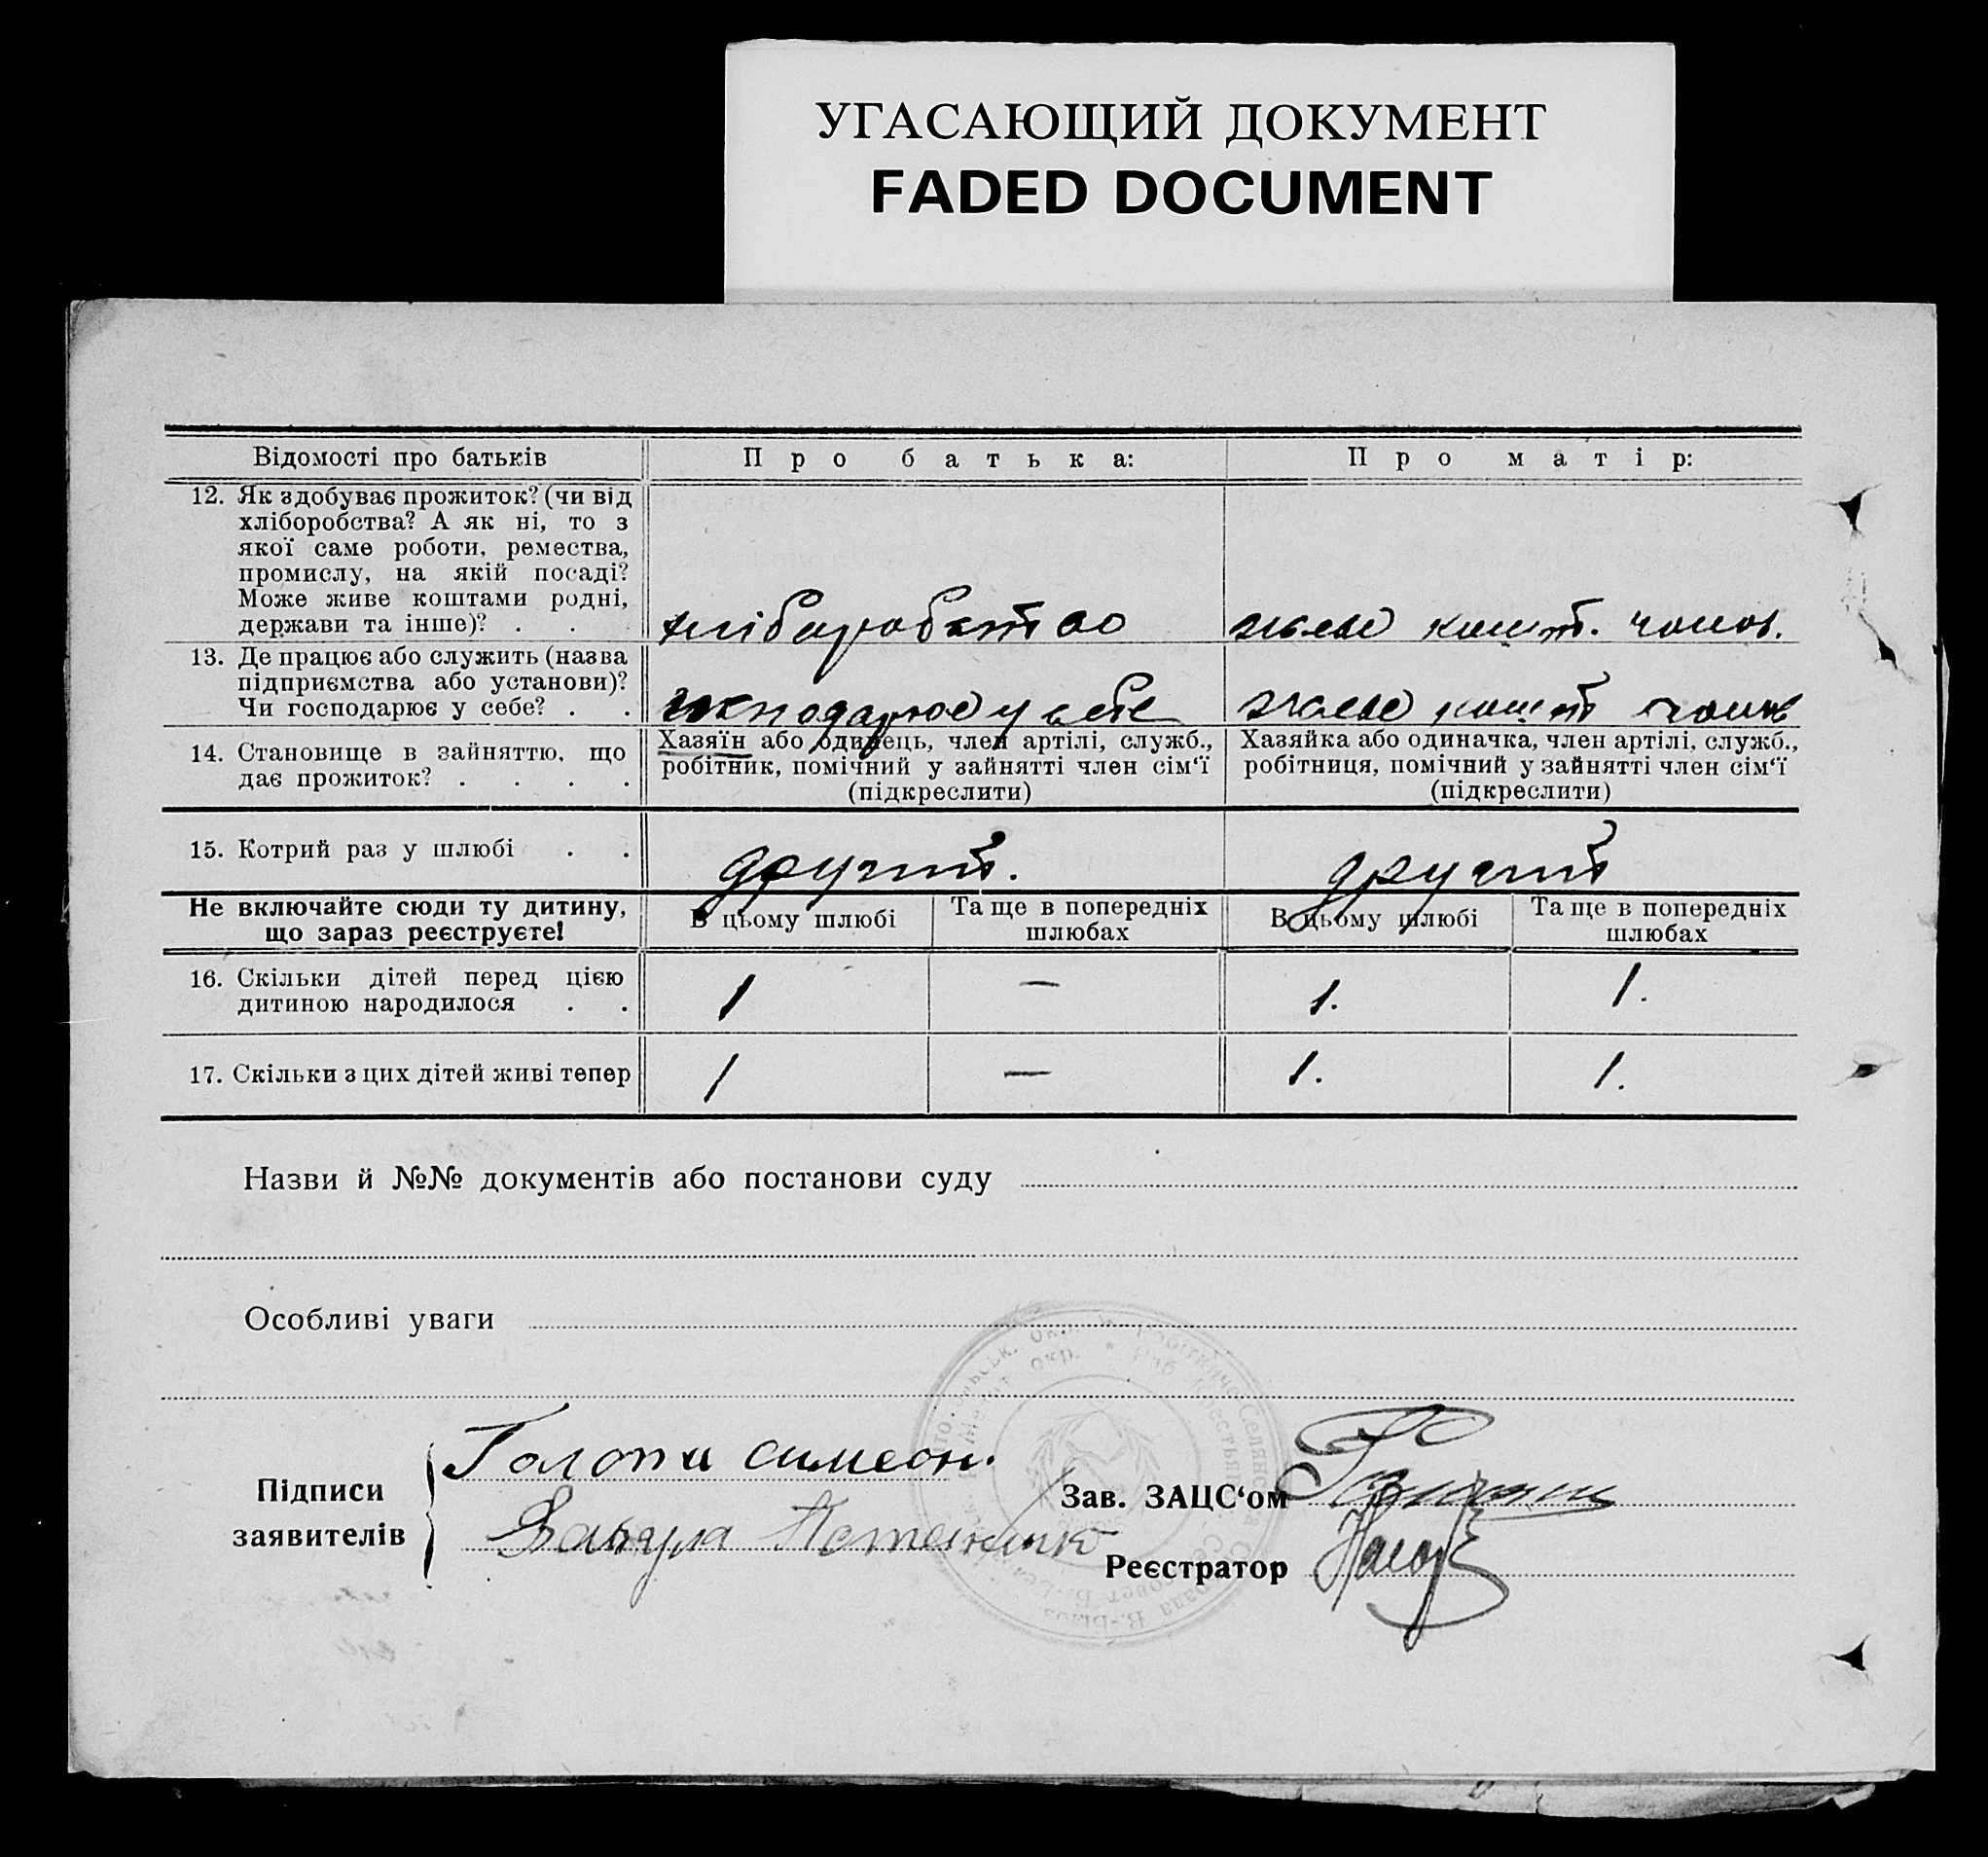 УГАСАЮЩИЙ ДОКУМЕНТ
FADED DOCUMENT
Відомості про батьків
Про батька:
Про матір:
12. Як здобуває прожиток? (чи від
хліборобства? А як ні, то з
якої саме роботи, ремества,
промислу, на якій посаді?
Може живе коштами родні,
держави та інше)? . . .
хліборобство
живе кошт. чолов.
13. Де працює або служить (назва
підприємства або установи)?
Чи господарює у себе? . .
господарює у себе
живе кошт чолов
14. Становище в зайняттю, що
дає прожиток? . . . .
Хазяїн або одинець, член артілі, служб.,
робітник, помічний у зайнятті член сім‘ї
(підкреслити)
Хазяйка або одиначка, член артілі, служб.,
робітниця, помічний у зайнятті член сім‘ї
(підкреслити)
15. Котрий раз у шлюбі . .
другий.
другий
Не включайте сюди ту дитину,
що зараз реєструєте!
В цьому шлюбі
Та ще в попередніх
шлюбах
В цьому шлюбі
Та ще в попередніх
шлюбах
16. Скільки дітей перед цією
дитиною народилося . .
1 — 1. 1.
17. Скільки з цих дітей живі тепер
1 — 1. 1.
Назви й №№ документів або постанови суду
Особливі уваги
Підписи
заявителів
Голота симеон.
Зав. ЗАЦС‘ом
Реєстратор